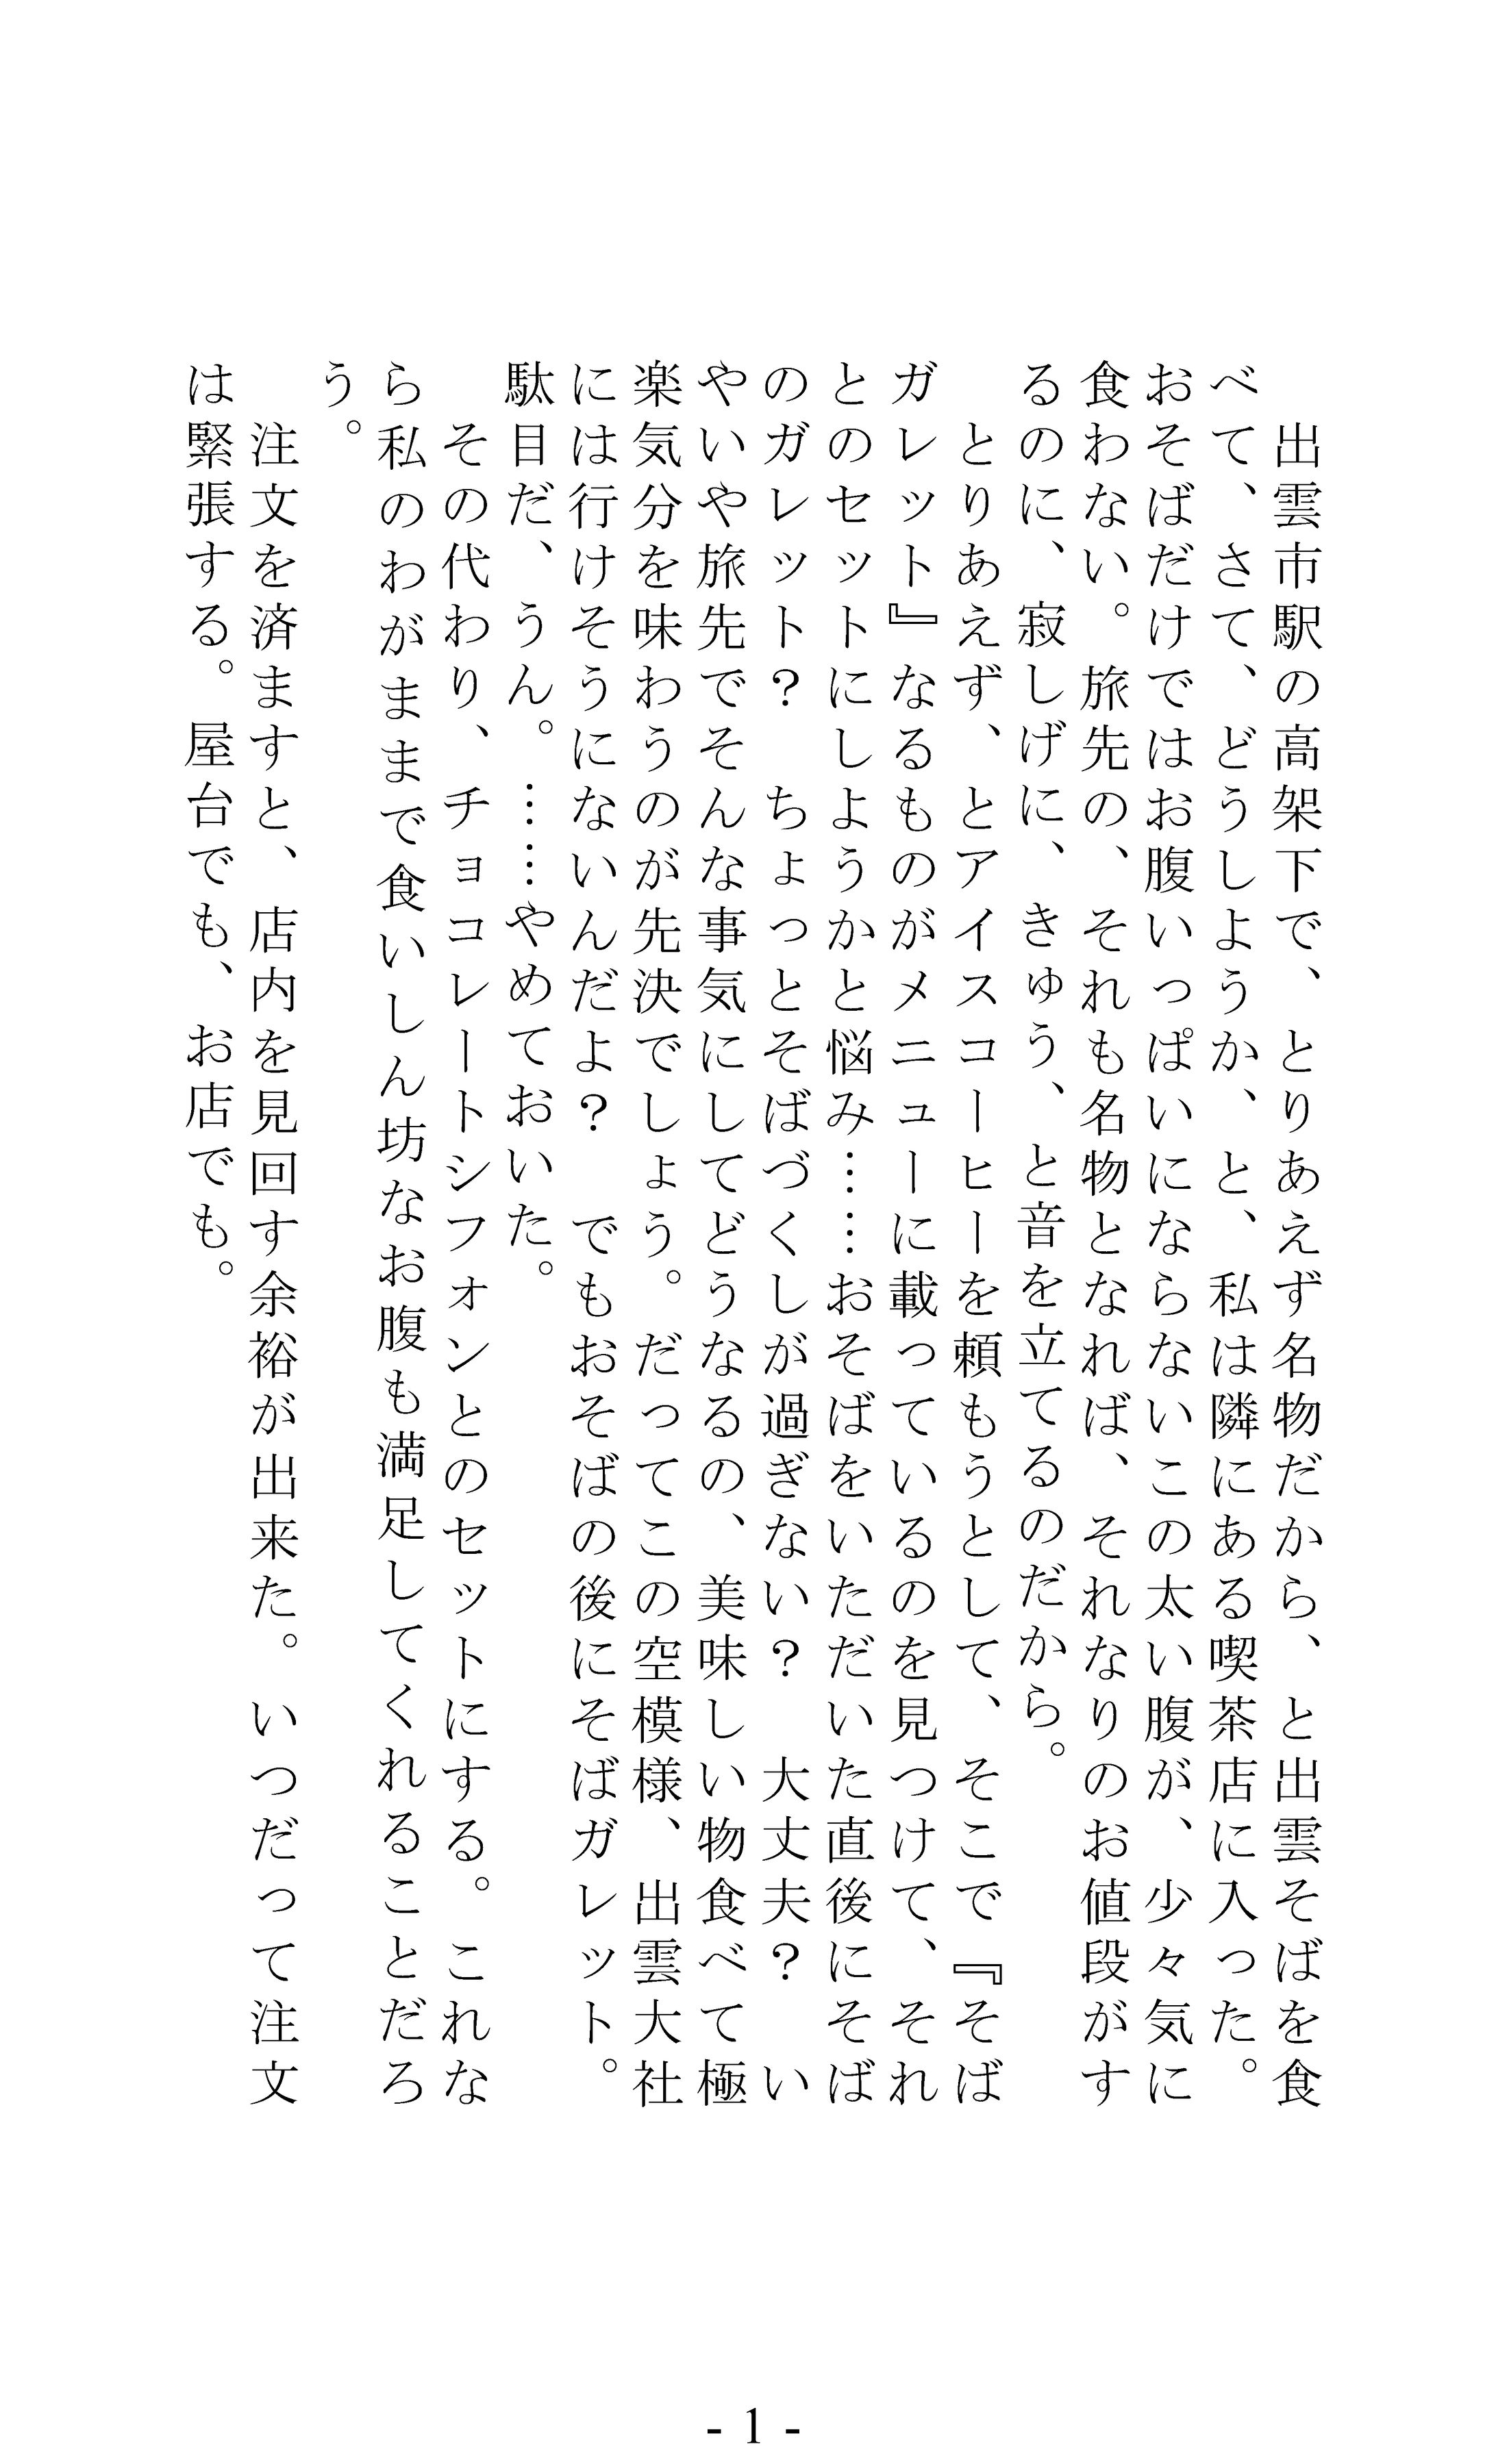 出雲市駅の高架下で、とりあえず名物だから、と出雲そばを食
べて、さて、どうしようか、と、私は隣にある喫茶店に入った。
おそばだけではお腹いっぱいにならないこの太い腹が、少々気に
食わない。旅先の、それも名物となれば、それなりのお値段がす
るのに、寂しげに、きゅう、と音を立てるのだから。
　とりあえず、とアイスコーヒーを頼もうとして、そこで『そば
ガレット』なるものがメニューに載っているのを見つけて、それ
とのセットにしようかと悩み……おそばをいただいた直後にそば
のガレット？　ちょっとそばづくしが過ぎない？　大丈夫？　い
やいや旅先でそんな事気にしてどうなるの、美味しい物食べて極
楽気分を味わうのが先決でしょう。だってこの空模様、出雲大社
には行けそうにないんだよ？　でもおそばの後にそばガレット。
駄目だ、うん。……やめておいた。
　その代わり、チョコレートシフォンとのセットにする。これな
ら私のわがままで食いしん坊なお腹も満足してくれることだろ
う。
　注文を済ますと、店内を見回す余裕が出来た。いつだって注文
は緊張する。屋台でも、お店でも。
- 1 -